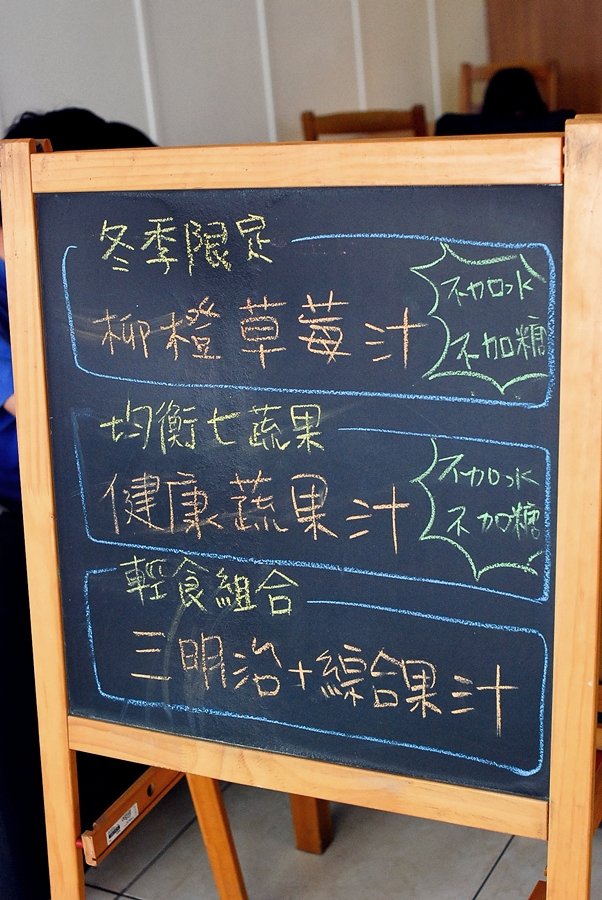 冬季限定
柳橙草莓汁
不加水
不加糖
均衡七蔬果
健康蔬果汁
不加水
不加糖
輕食組合
三明治+綜合果汁